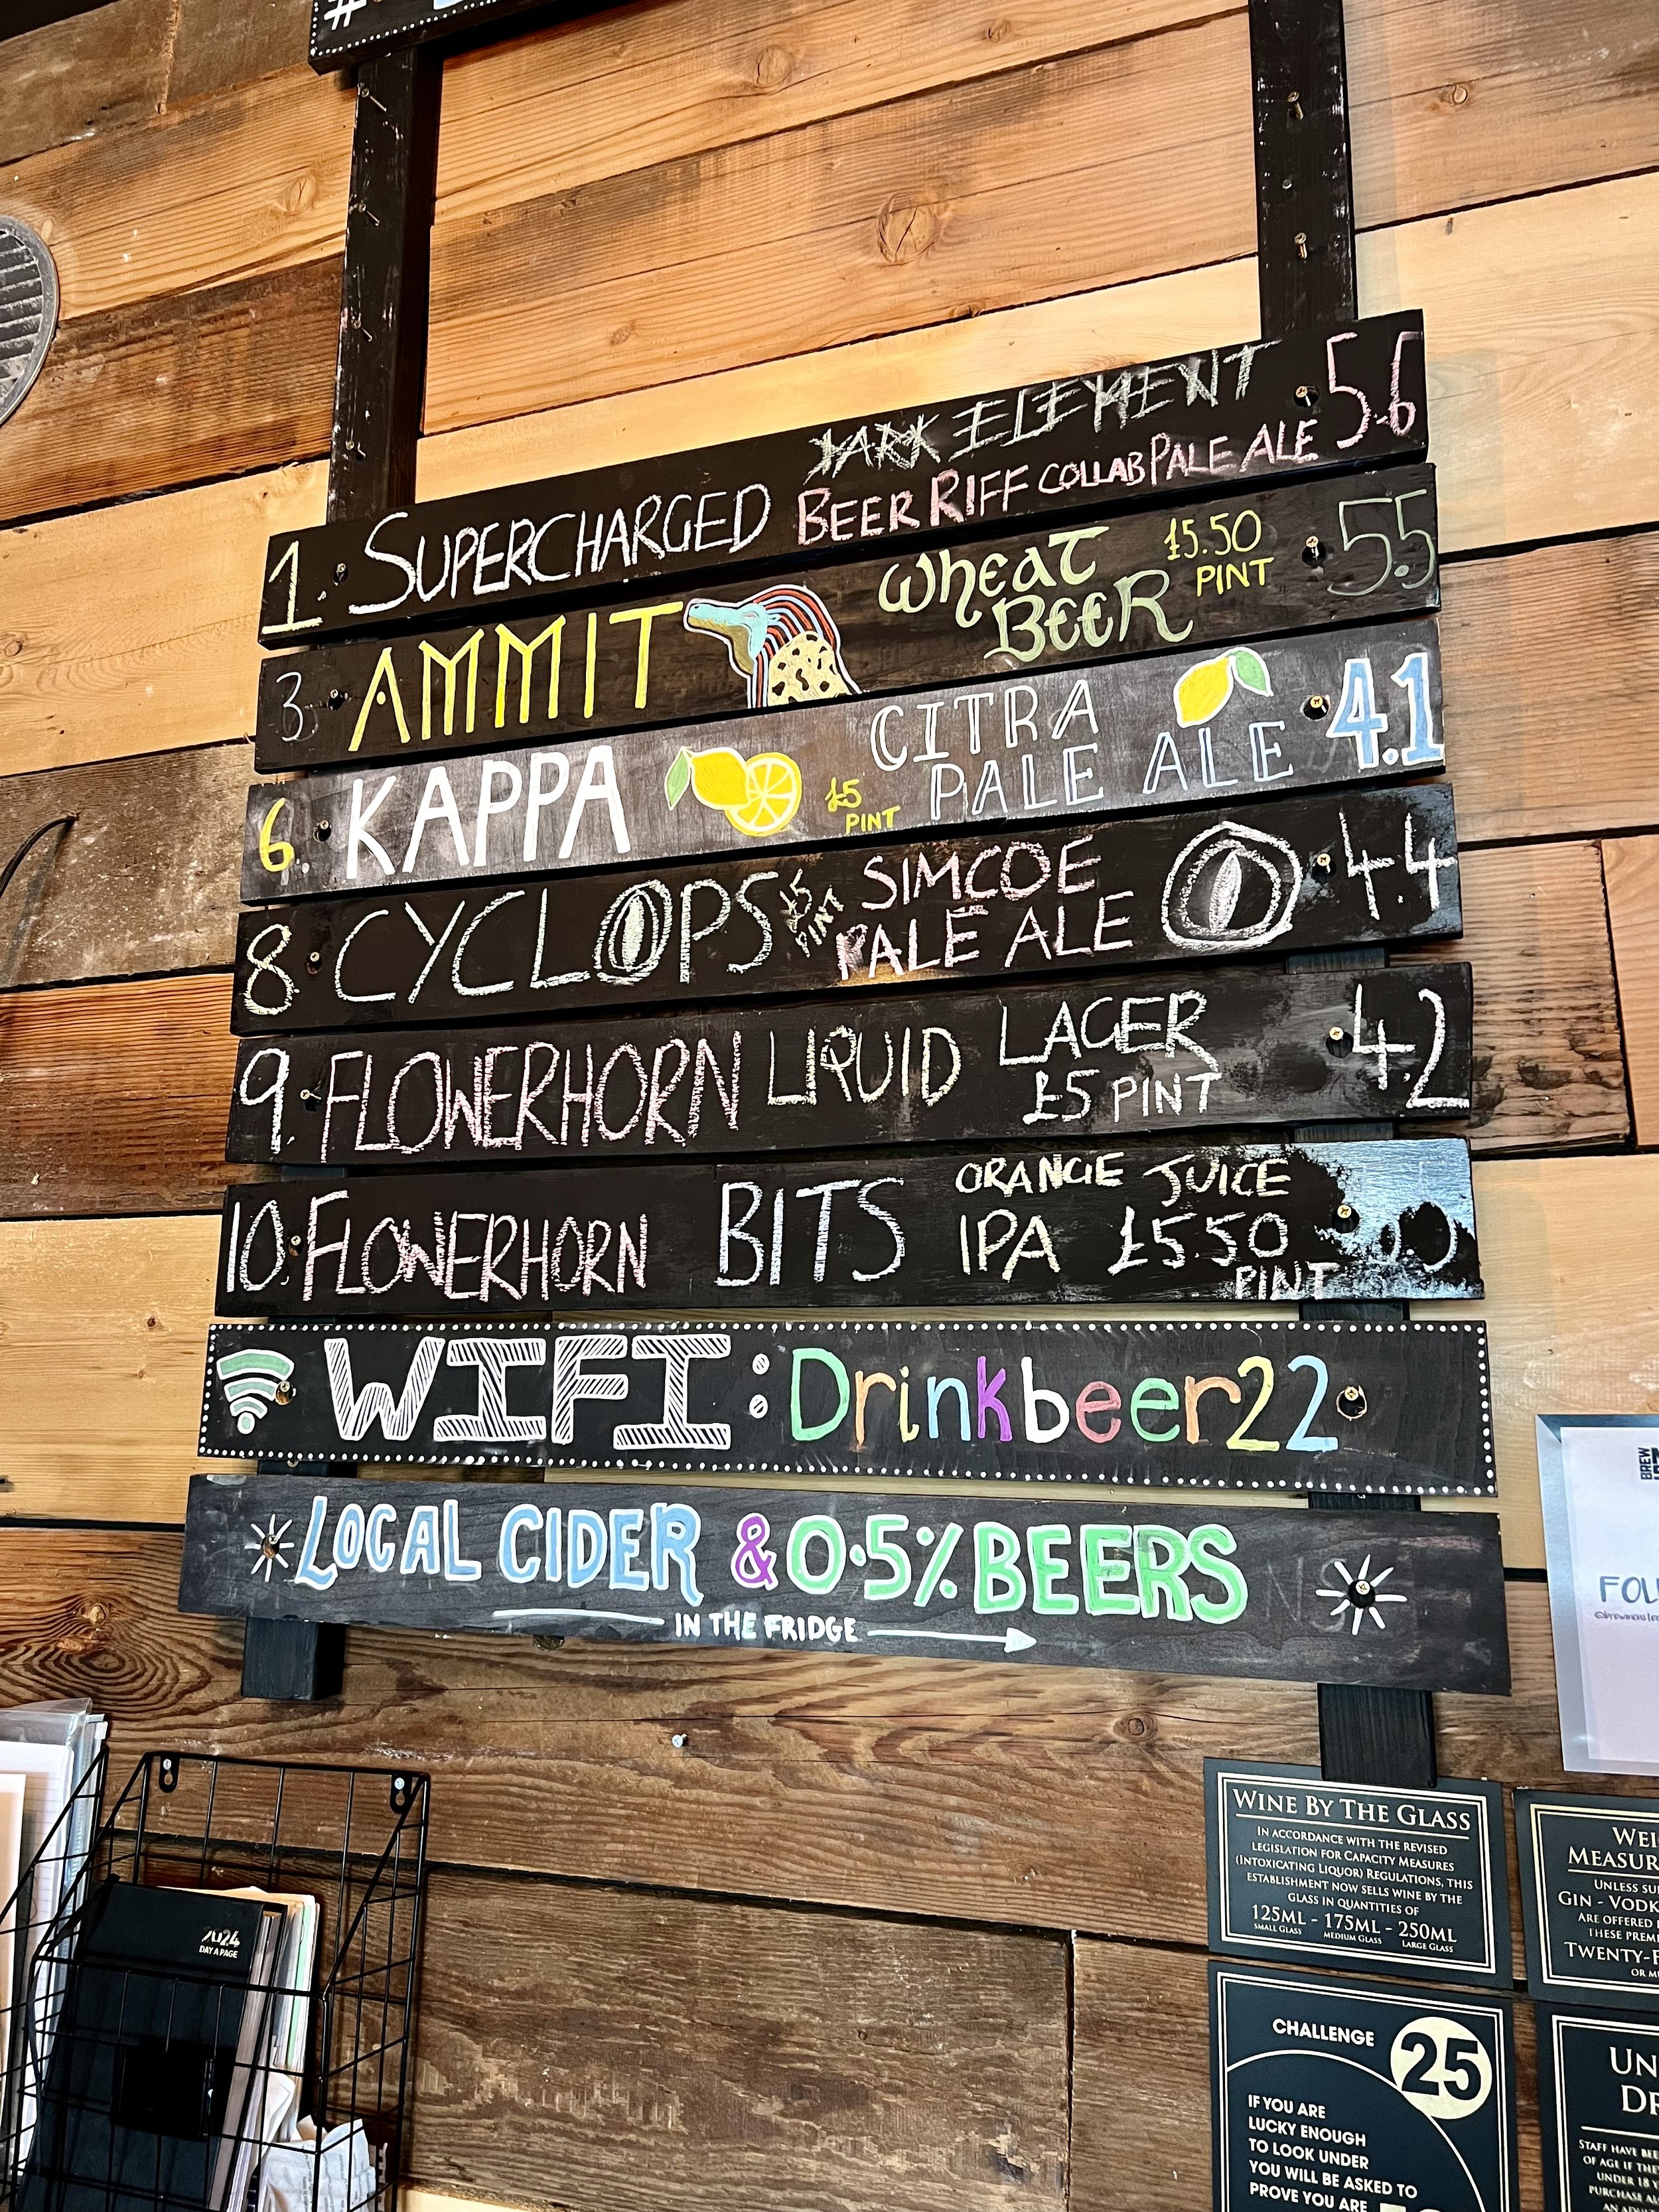 #
DARK ELEMENT
1. SUPERCHARGED BEER RIFF COLLAB PALE ALE 5.6
3. AMMIT WHEAT BEER £5.50 PINT 5.5
6. KAPPA £5 PINT CITRA PALE ALE 4.1
8. CYCLOPS £5 PINT SIMCOE PALE ALE 4.4
9. FLOWERHORN LIQUID LAGER £5 PINT 4.2
10. FLOWERHORN BITS ORANGE JUICE IPA £5.50 PINT
WIFI: Drinkbeer22
LOCAL CIDER & 0.5% BEERS
IN THE FRIDGE
BREW
FOL
2024
DAY A PAGE
WINE BY THE GLASS
IN ACCORDANCE WITH THE REVISED
LEGISLATION FOR CAPACITY MEASURES
(INTOXICATING LIQUOR) REGULATIONS, THIS
ESTABLISHMENT NOW SELLS WINE BY THE
GLASS IN QUANTITIES OF
125ML - 175ML - 250ML
SMALL GLASS MEDIUM GLASS LARGE GLASS
WEI
MEASUR
UNLESS SU
GIN - VODK
ARE OFFERED
THESE PREM
TWENTY-F
OR M
CHALLENGE 25
IF YOU ARE
LUCKY ENOUGH
TO LOOK UNDER
YOU WILL BE ASKED TO
PROVE YOU ARE
UN
DR
STAFF HAVE BEE
OF AGE IF THE
UNDER 18 Y
PURCHASE A
AN ADUL